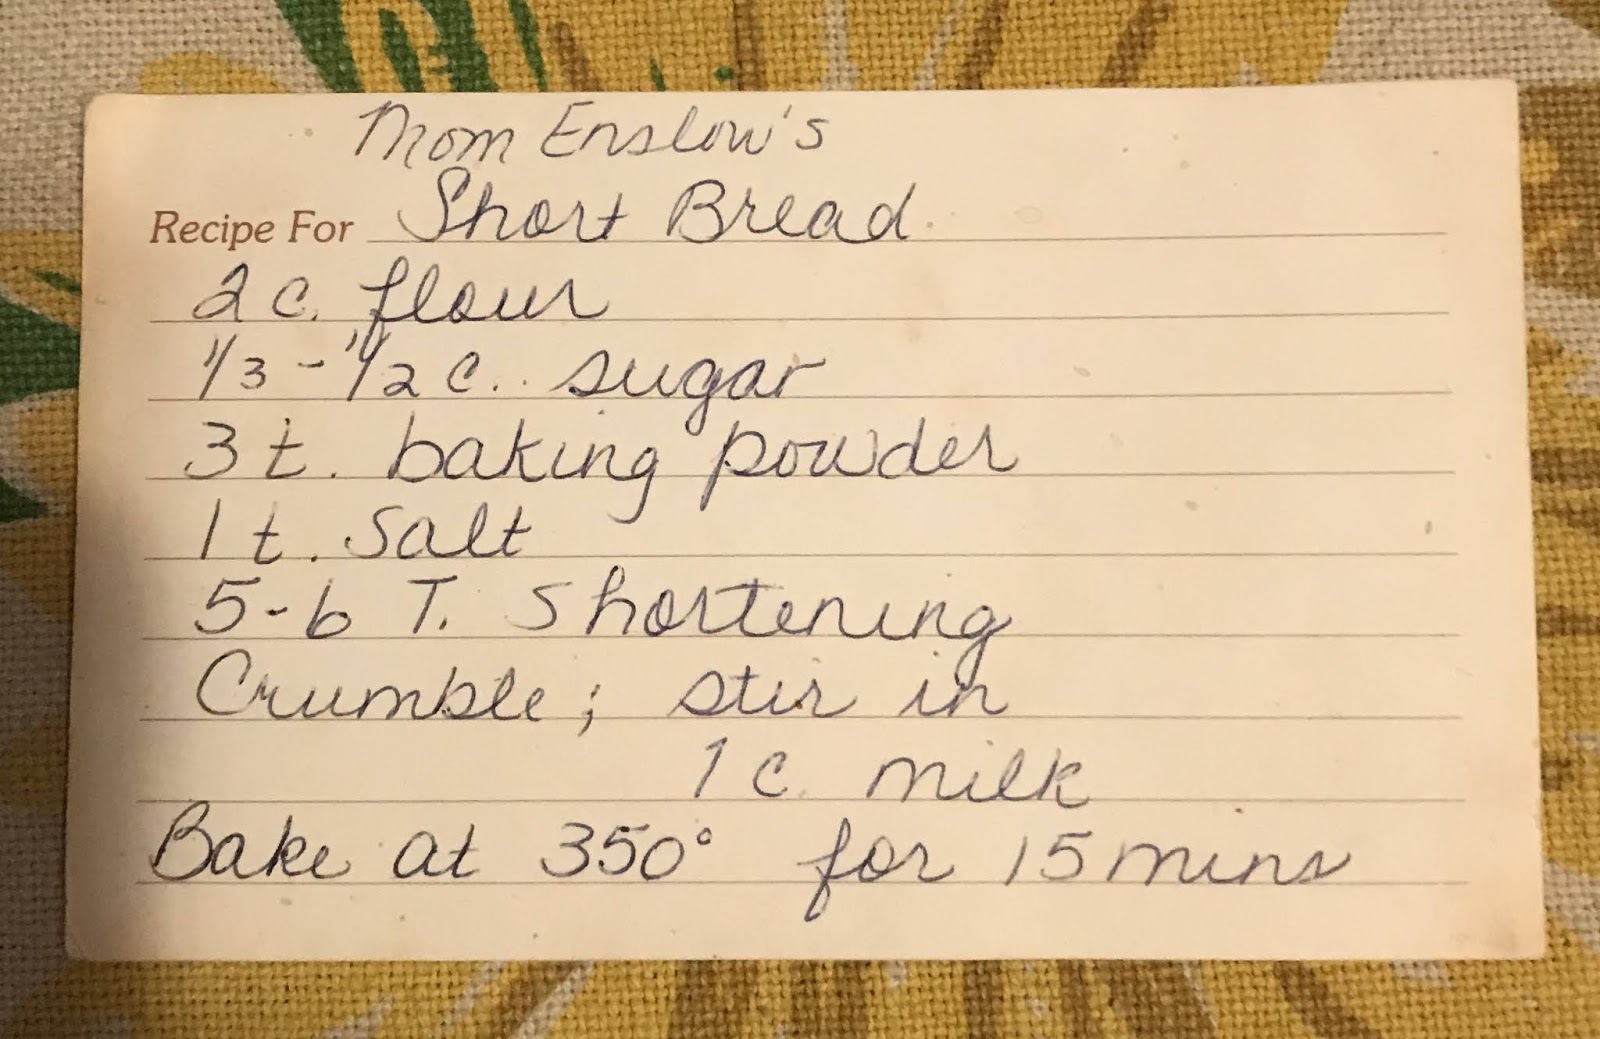 Mom Enslow's
Recipe For Short Bread
2 c. flour
1/3 - 1/2 c. sugar
3 t. baking powder
1 t. salt
5-6 T. shortening
Crumble; stir in
1 c. milk
Bake at 350° for 15 mins